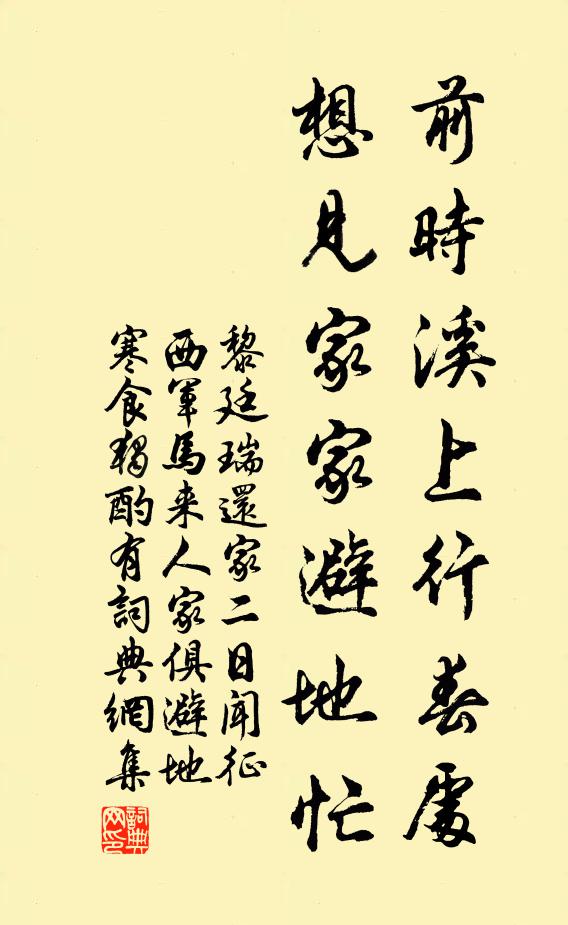 前時溪上行春處
想見家家避地忙
黎廷瑞還家二日聞征
西軍馬来人家俱避地
寒食獨酌有詞典網集
詞典
网印